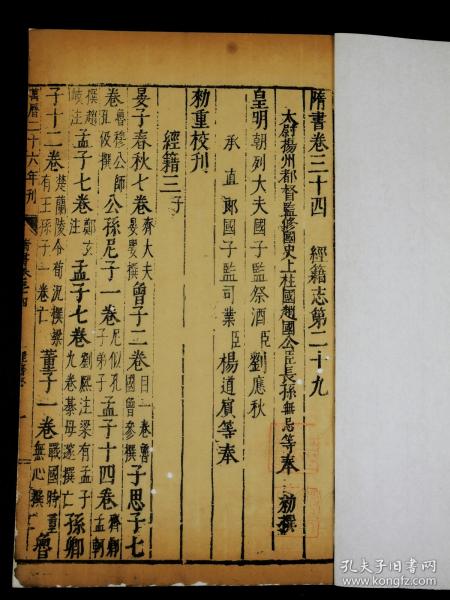 隋書卷三十四 經籍志第二十九
太尉揚州都督監修國史上柱國趙國公臣長孫無忌等奉 勑撰
皇明朝列大夫國子監祭酒臣劉應秋
承直郎國子監司業臣楊道賓等奉
勑重校刊
經籍三子
晏子春秋七卷齊大夫晏嬰撰曾子二卷目一卷魯國曾參撰子思子七
卷魯穆公師孔伋撰公孫尼子一卷尼似孔子弟子孟子十四卷齊卿孟軻
撰趙岐注孟子七卷鄭玄注孟子七卷劉熙注梁有孟子九卷綦毋邃撰亡孫卿
子十二卷楚蘭陵令荀況撰梁有王孫子一卷亡董子一卷戰國時董無心撰亡魯
萬曆二十六年刊
孔夫子旧书网
www.kongfz.com